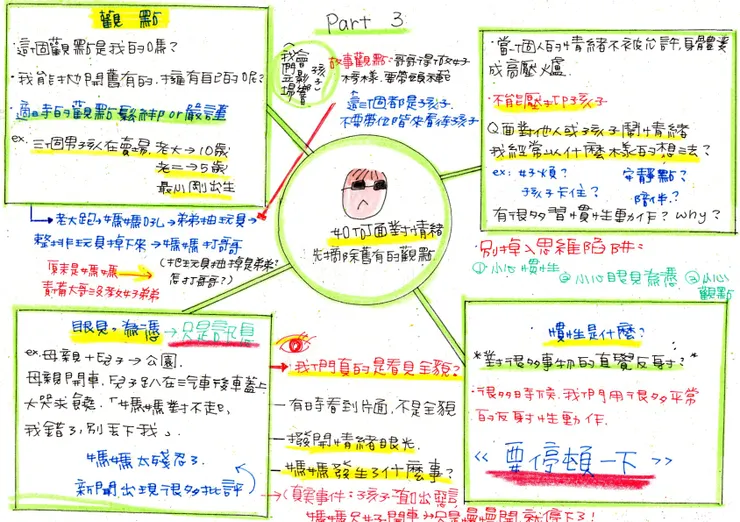 Part 3
觀 點
·這個觀點是我的嗎?
·我能拋開舊有的.擁有自己的呢?
適時的觀點鬆綁 or 嚴謹
ex. 三個男孩在賣場. 老大→10歲
老二→5歲
最小剛出生
→老大跑→媽媽吼→弟弟抽玩具→
整排玩具掉下來→媽媽打哥哥
(把玩具抽掉是弟弟?
怎打哥哥?)
原來是媽媽
責備大哥沒教好弟弟
會影響
孩子
我們立場
故事觀點:哥哥得做好
榜樣.要帶頭
這三個都是孩子.
不要帶位階來看待孩子
如何面對情緒
先摘除舊有的觀點.
·當一個人的情緒不被允許.身體變
成高壓爐
·不能壓抑孩子
Q面對他人或孩子鬧情緒
我經常以什麼樣的想法?
ex: 好煩? 安靜點?
孩子卡住? 陪伴?
有很多習慣性動作? Why?
·別掉入思維陷阱:
①小心慣性
②小心眼見為憑 ③小心
觀點
眼見為憑→只是訊息
ex. 母親+兒子→公園.
母親開車.兒子趴在汽車後車蓋上
大哭求饒.「媽媽對不起,
我錯了,別丟下我」
媽媽太殘忍了.
新聞出現很多批評
→我們真的是看見全貌?
—有時看到片面,不是全貌
—撥開情緒眼光.
—媽媽發生了什麼事?
→(真實事件:孩子
媽媽只好開車→只是慢慢開就停下了!
慣性是什麼?
*對很多事物的直覺反射?*
·很多時候.我們用很多平常
的反射性動作.
<< 要停頓一下 >>